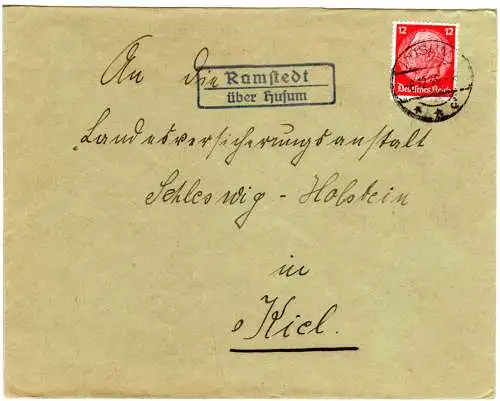 12 12
Deutsches Reich
An die
Ramstedt
über Husum
Landesversicherungsanstalt
Schleswig-Holstein
in
Kiel.